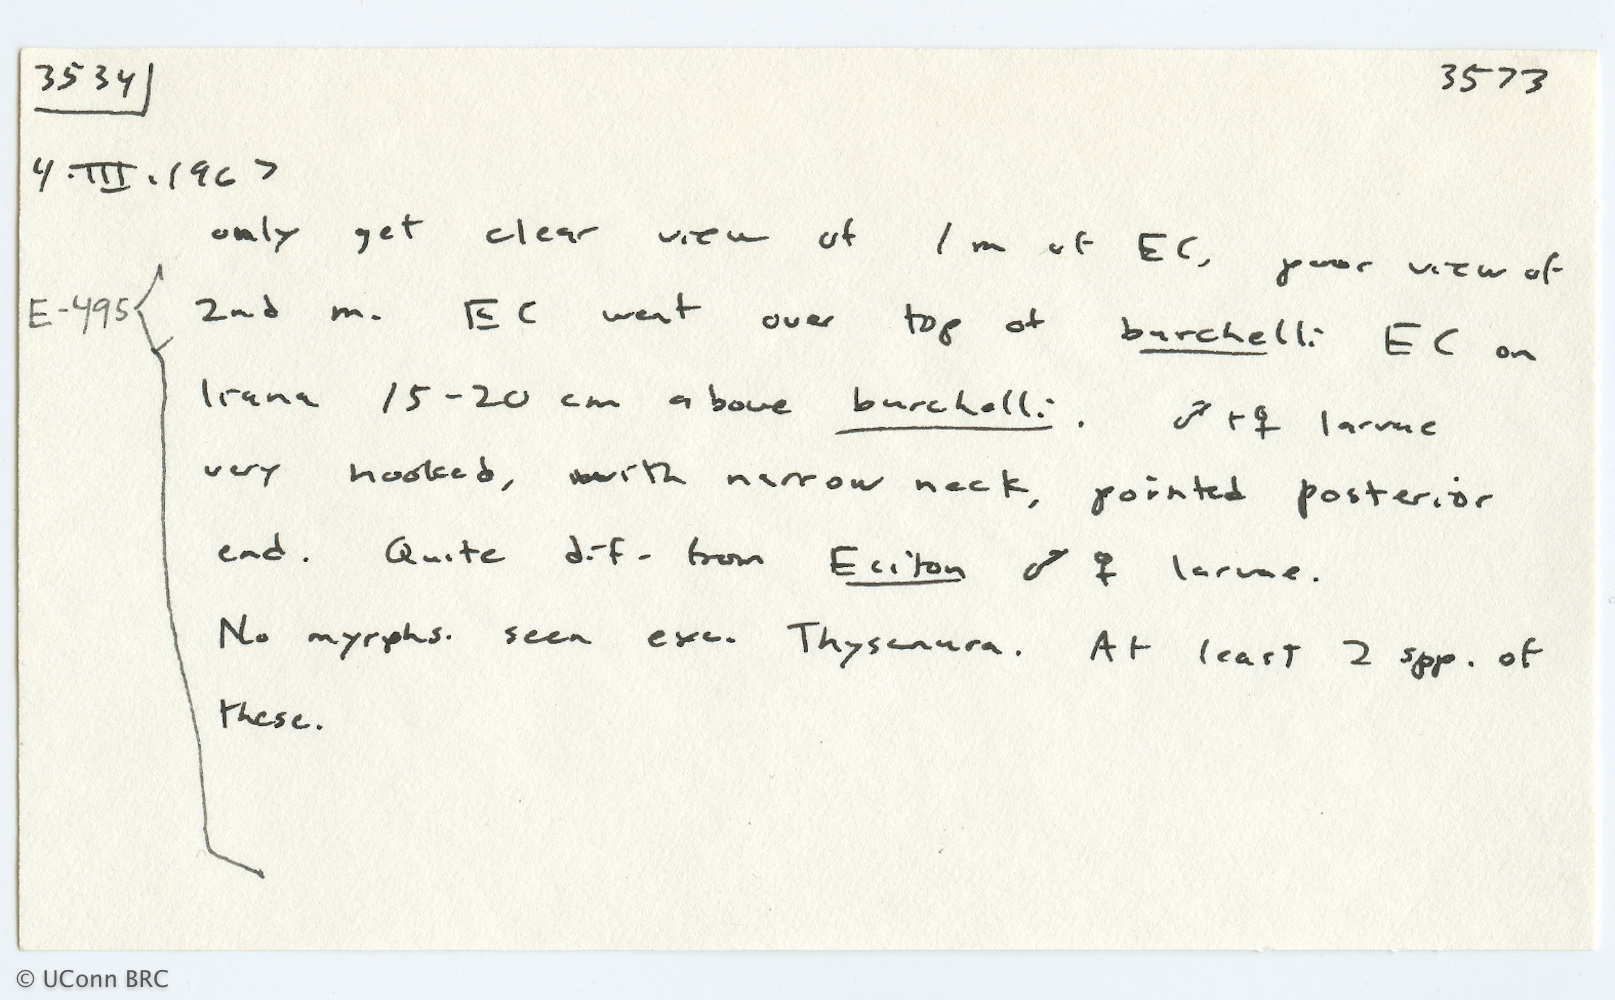 3534 3573
4.III.1967
only get clear view of 1 m of EC, poor view of
E-495 2nd m. EC went over top of burchelli EC on
liana 15-20 cm above burchelli. ♂ + ♀ larvae
very hooked, with narrow neck, pointed posterior
end. Quite dif. from Eciton ♂ ♀ larvae.
No myrphs. seen exc. Thysanura. At least 2 spp. of
these.
© UConn BRC